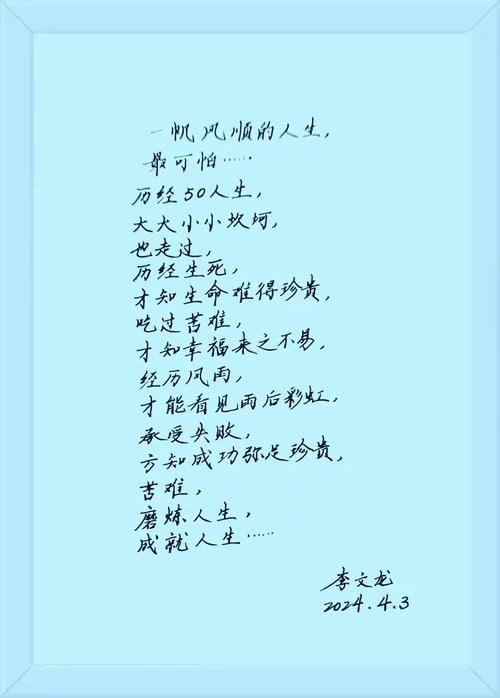 一帆风顺的人生,
最可怕……
历经50人生,
大大小小坎坷,
也走过,
历经生死,
才知生命难得珍贵,
吃过苦难,
才知幸福来之不易,
经历风雨,
才能看见雨后彩虹,
承受失败,
方知成功弥足珍贵,
苦难,
磨炼人生,
成就人生……
李文龙
2024.4.3